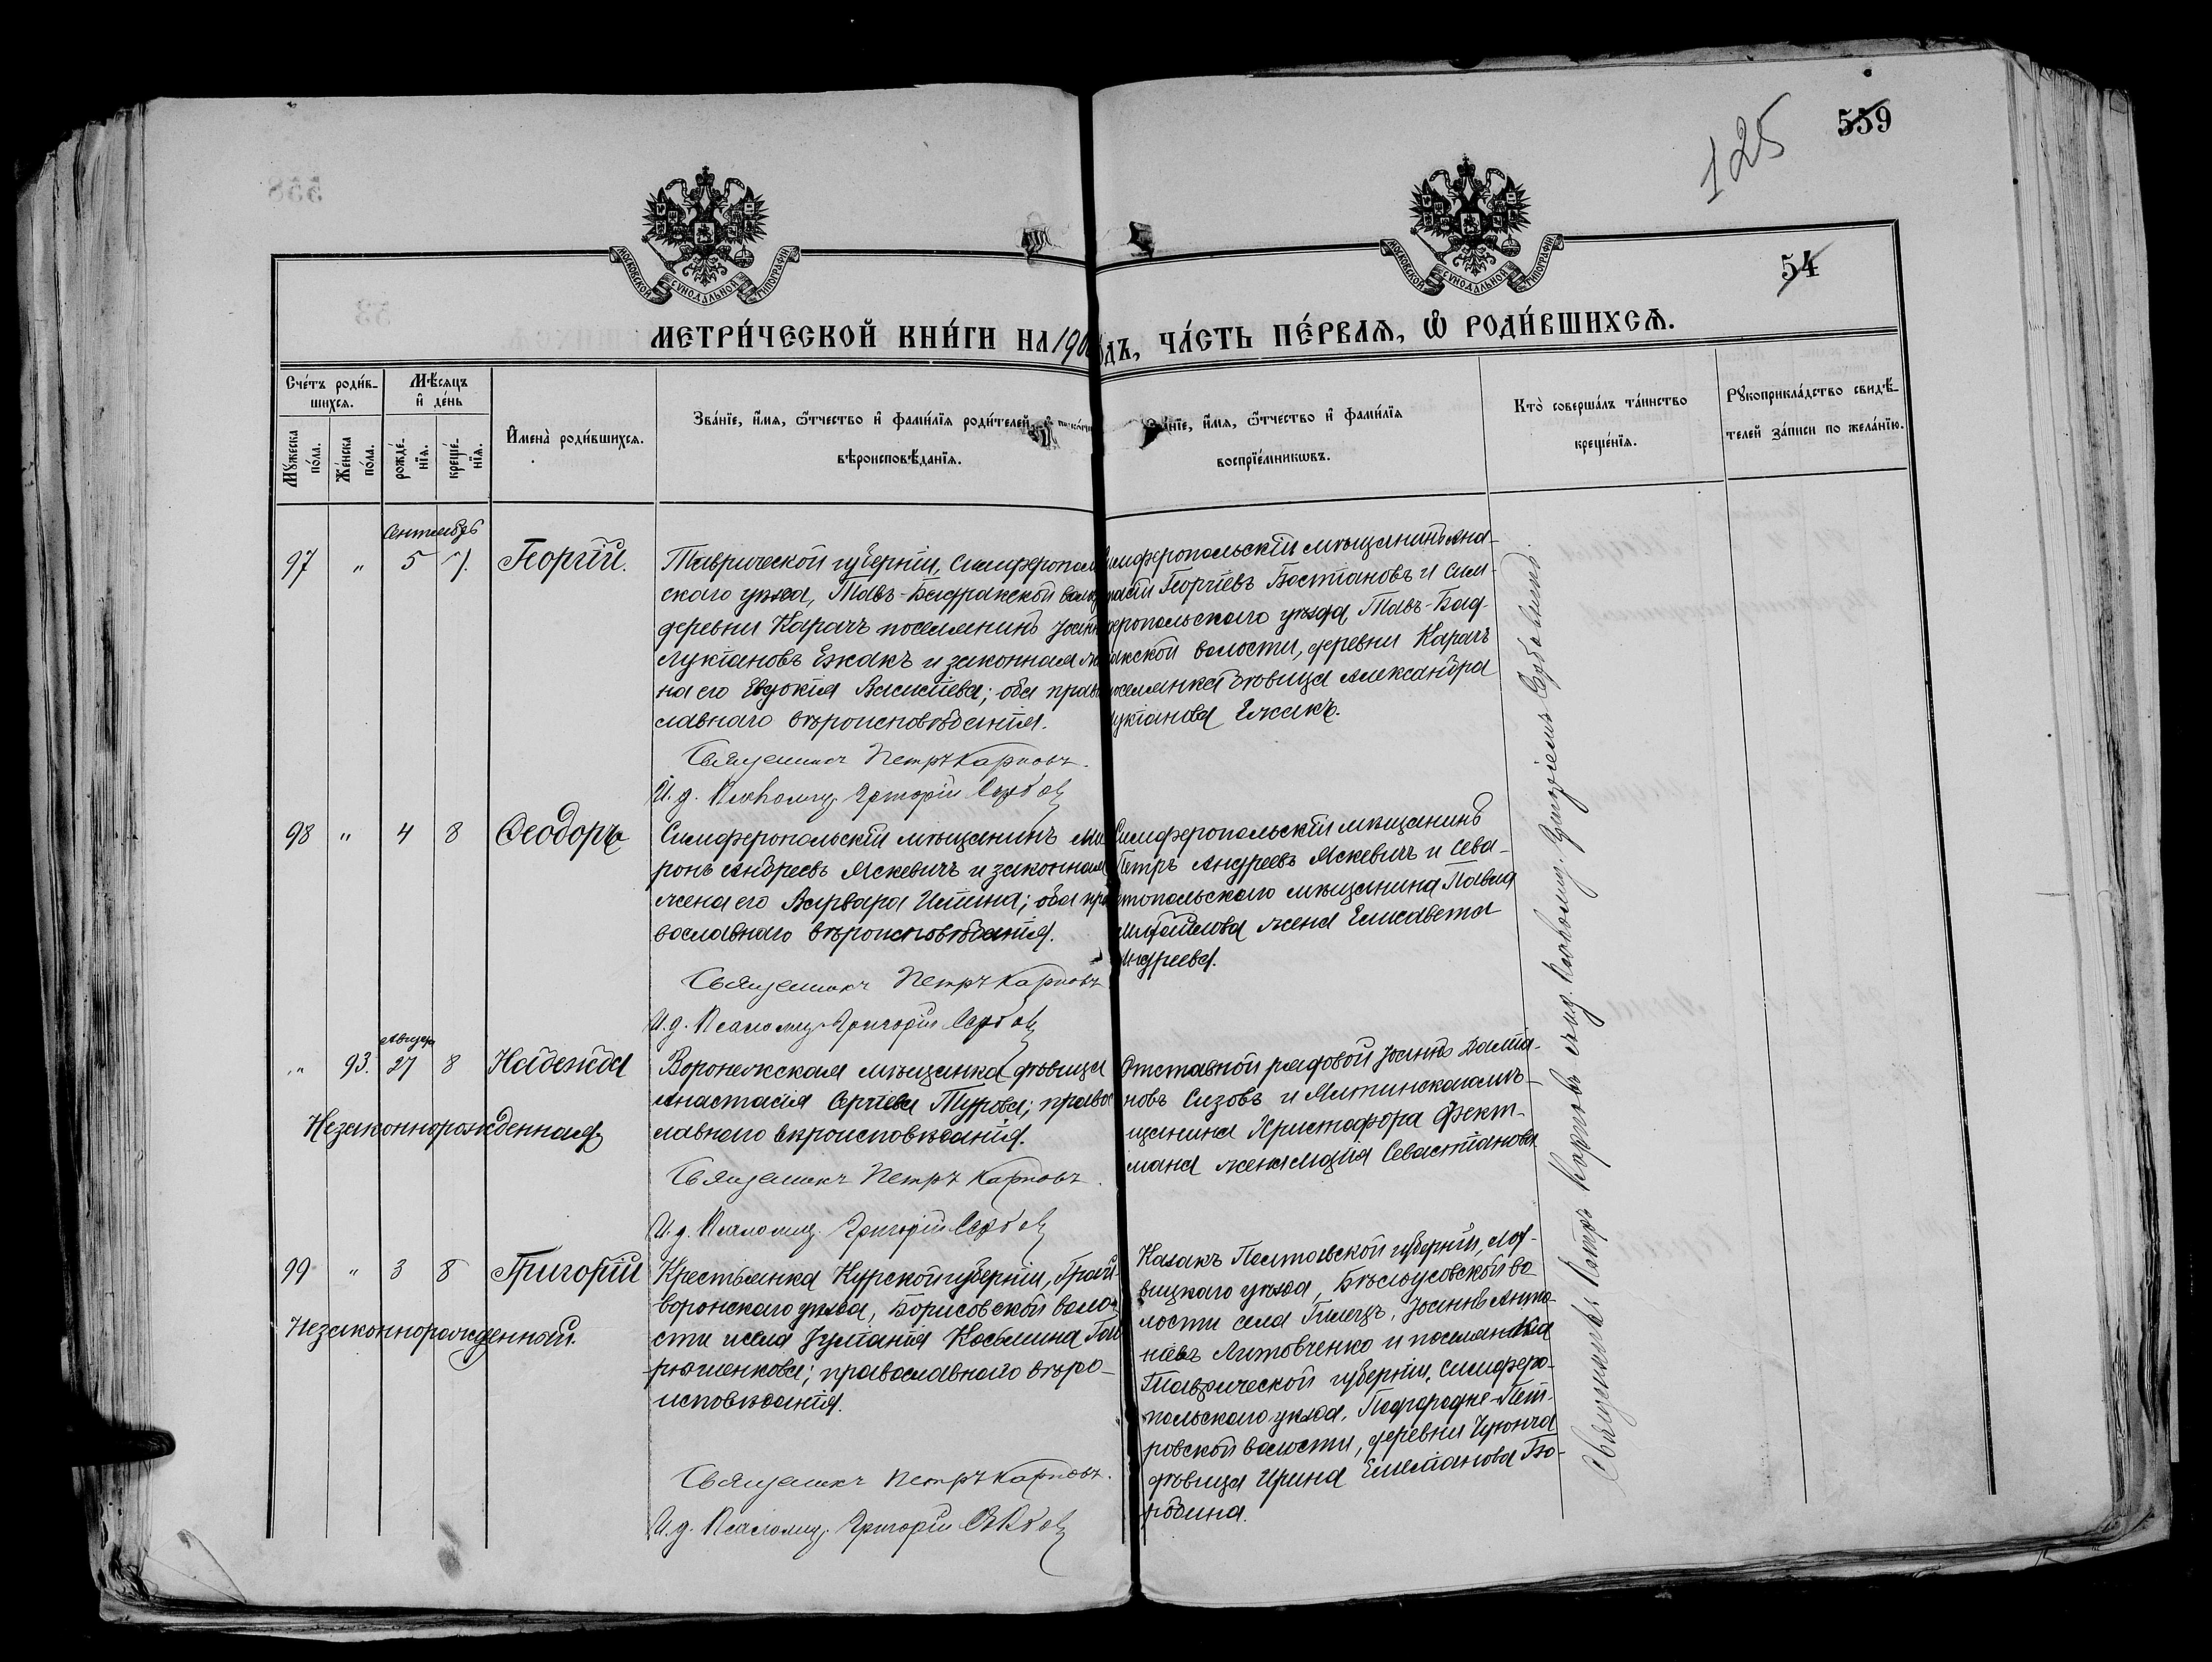 125
559
54
МОСКОВСКОЙ СѴНОДАЛЬНОЙ ТИПОГРАФІИ
МОСКОВСКОЙ СѴНОДАЛЬНОЙ ТИПОГРАФІИ
МЕТРИ́ЧЕСКОЙ КНИ́ГИ НА 190
ДЪ, ЧА́СТЬ ПЕ́РВАЯ, Ѡ РОДИ́ВШИХСЯ.
Сче́тъ роди́в-
шихся.
Му́жеска по́ла.
Же́нска по́ла.
Мѣ́сяцъ
и де́нь
рожде́-
нїя.
креще́-
нїя.
И́мена̀ роди́вшихся.
Зва́нїе, и́мя, ѻ́тчество и фами́лїя роди́телей,
вѣроисповѣ́данїя.
Зва́нїе, и́мя, ѻ́тчество и фами́лїя
воспрїе́мникѡвъ.
Кто̀ соверша́лъ та́инство
креще́нїя.
Рꙋкоприкла́дство свидѣ́-
телей за́писи по жела́нїю.
Сентябрь
97 " 5 7. Георгій.
Таврической губерніи, Симферополь
скаго уѣзда, Тавъ-Бадракской воло
деревни Карачъ поселянинъ Іоаннъ
Лукіановъ Ежакъ и законная же
на его Евдокія Василіева; оба право
славнаго вѣроисповѣданія.
Священникъ Петръ Карповъ.
И. д. Псаломщ. Григорій Сербовъ
Симферопольскій мѣщанинъ Ана-
стасій Георгіевъ Бостановъ и Сим-
феропольскаго уѣзда, Тавъ-Бад-
ракской волости, деревни Карачъ
поселянка дѣвица Александра
Лукіанова Ежакъ.
98 " 4 8 Ѳеодоръ
Симферопольскій мѣщанинъ Ми
ронъ Андреевъ Яскевичъ и законная
жена его Варвара Ильина; оба пра
вославнаго вѣроисповѣданія.
Священникъ Петръ Карповъ
И. д. Псаломщ. Григорій Сербовъ
Симферопольскій мѣщанинъ
Петръ Андреевъ Яскевичъ и Сева-
стопольскаго мѣщанина Павла
Михайлова жена Елисавета
Андреева.
Август
" 93. 27 8 Надежда
Незаконнорожденная
Воронежская мѣщанка дѣвица
Анастасія Сергіева Турова; правос
лавнаго вѣроисповѣданія.
Священникъ Петръ Карповъ.
И. д. Псаломщ. Григорій Сербовъ
Отставной рядовой Іоаннъ Даміа-
новъ Сизовъ и Ялтинскаго мѣ-
щанина Христофора Фект-
мана жена Марія Севастіанова
99 " 3 8 Григорій
Незаконнорожденный.
Крестьянка Курской губерніи, Грай-
воронскаго уѣзда, Борисовской воло
сти и села Іуліанія Косьмина Гав
рюшенкова; православнаго вѣро-
исповѣданія.
Священникъ Петръ Карповъ.
И. д. Псаломщ. Григорій Сербовъ
Казакъ Полтавской губерніи, Лох-
вицкаго уѣзда, Бѣлоусовской во
лости села Гилецъ, Іоаннъ Анто-
невъ Литовченко и поселянка
Таврической губерніи, Симферо-
польскаго уѣзда, Подгородне-Пет-
ровской волости, деревни Чуюнча
дѣвица Ирина Емеліанова Бо-
родина.
Священникъ Петръ Карповъ съ и. д. Псаломщ. Григоріемъ Сербовымъ.